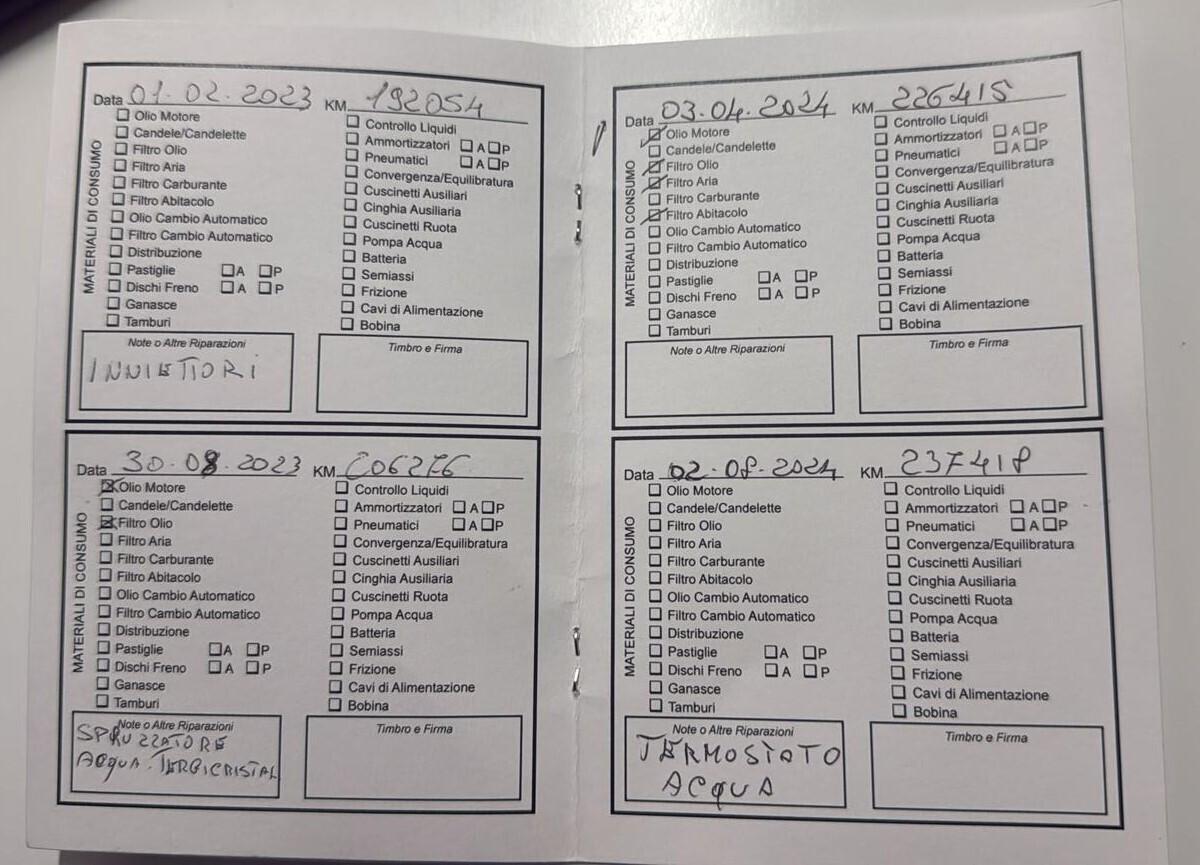 Data 01.02.2023 KM 192054
MATERIALI DI CONSUMO
Olio Motore
Candele/Candelette
Filtro Olio
Filtro Aria
Filtro Carburante
Filtro Abitacolo
Olio Cambio Automatico
Filtro Cambio Automatico
Distribuzione
Pastiglie A P
Dischi Freno A P
Ganasce
Tamburi
Controllo Liquidi
Ammortizzatori A P
Pneumatici A P
Convergenza/Equilibratura
Cuscinetti Ausiliari
Cinghia Ausiliaria
Cuscinetti Ruota
Pompa Acqua
Batteria
Semiassi
Frizione
Cavi di Alimentazione
Bobina
Note o Altre Riparazioni
INNIETTORI
Timbro e Firma
Data 30.08.2023 KM 206276
MATERIALI DI CONSUMO
Olio Motore
Candele/Candelette
Filtro Olio
Filtro Aria
Filtro Carburante
Filtro Abitacolo
Olio Cambio Automatico
Filtro Cambio Automatico
Distribuzione
Pastiglie A P
Dischi Freno A P
Ganasce
Tamburi
Controllo Liquidi
Ammortizzatori A P
Pneumatici A P
Convergenza/Equilibratura
Cuscinetti Ausiliari
Cinghia Ausiliaria
Cuscinetti Ruota
Pompa Acqua
Batteria
Semiassi
Frizione
Cavi di Alimentazione
Bobina
Note o Altre Riparazioni
SPRUZZATORE
ACQUA TERGICRISTAL
Timbro e Firma
Data 03.04.2024 KM 226415
MATERIALI DI CONSUMO
Olio Motore
Candele/Candelette
Filtro Olio
Filtro Aria
Filtro Carburante
Filtro Abitacolo
Olio Cambio Automatico
Filtro Cambio Automatico
Distribuzione
Pastiglie A P
Dischi Freno A P
Ganasce
Tamburi
Controllo Liquidi
Ammortizzatori A P
Pneumatici A P
Convergenza/Equilibratura
Cuscinetti Ausiliari
Cinghia Ausiliaria
Cuscinetti Ruota
Pompa Acqua
Batteria
Semiassi
Frizione
Cavi di Alimentazione
Bobina
Note o Altre Riparazioni
Timbro e Firma
Data 02.08.2024 KM 237418
MATERIALI DI CONSUMO
Olio Motore
Candele/Candelette
Filtro Olio
Filtro Aria
Filtro Carburante
Filtro Abitacolo
Olio Cambio Automatico
Filtro Cambio Automatico
Distribuzione
Pastiglie A P
Dischi Freno A P
Ganasce
Tamburi
Controllo Liquidi
Ammortizzatori A P
Pneumatici A P
Convergenza/Equilibratura
Cuscinetti Ausiliari
Cinghia Ausiliaria
Cuscinetti Ruota
Pompa Acqua
Batteria
Semiassi
Frizione
Cavi di Alimentazione
Bobina
Note o Altre Riparazioni
TERMOSTATO
ACQUA
Timbro e Firma